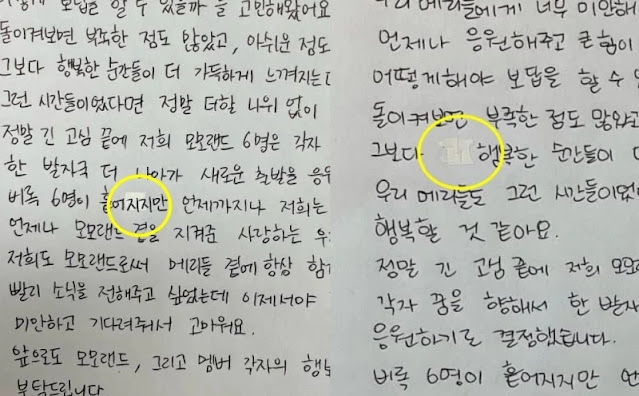 떻게 보답을 할 수 있을까 를 고민해왔어요
돌이켜보면 부족한 점도 많았고, 아쉬운 점도
그보다 행복한 순간들이 더 가득하게 느껴지는
그런 시간들이었다면 정말 더할 나위 없이
정말 긴 고심 끝에 저희 모모랜드 6명은 각자
한 발자국 더 나아가 새로운 출발을 응
비록 6명이 흩어지지만 언제까지나 저희는
언제나 모모랜드 곁을 지켜준 사랑하는 우
저희도 모모랜드로써 메리들 곁에 항상 함
빨리 소식을 전해주고 싶었는데 이제서야
미안하고 기다려줘서 고마워요.
앞으로도 모모랜드, 그리고 멤버 각자의 행
부탁드립니다
우리 메리들에게 너무 미안해
언제나 응원해주고 큰 힘이
어떻게해야 보답을 할 수
돌이켜보면 부족한 점도 많았고
그보다 더 행복한 순간들이
우리 메리들도 그런 시간들이었
행복할 것 같아요.
정말 긴 고심 끝에 저희 모모
각자 꿈을 향해서 한 발자
응원하기로 결정했습니다.
비록 6명이 흩어지지만 언